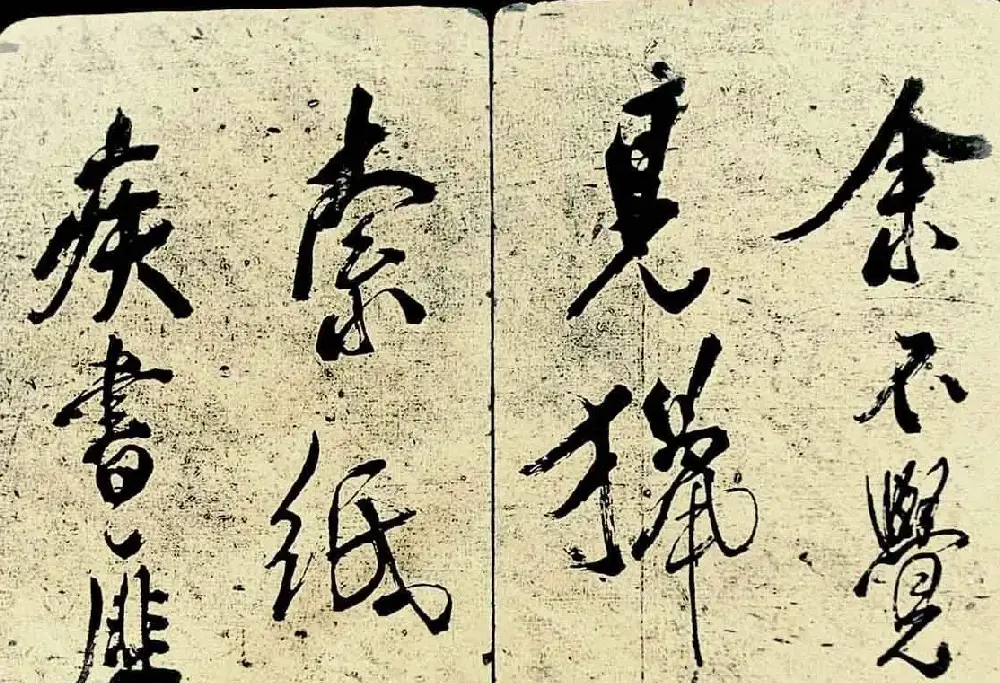 余不覺
見獵
索紙
疾書匪